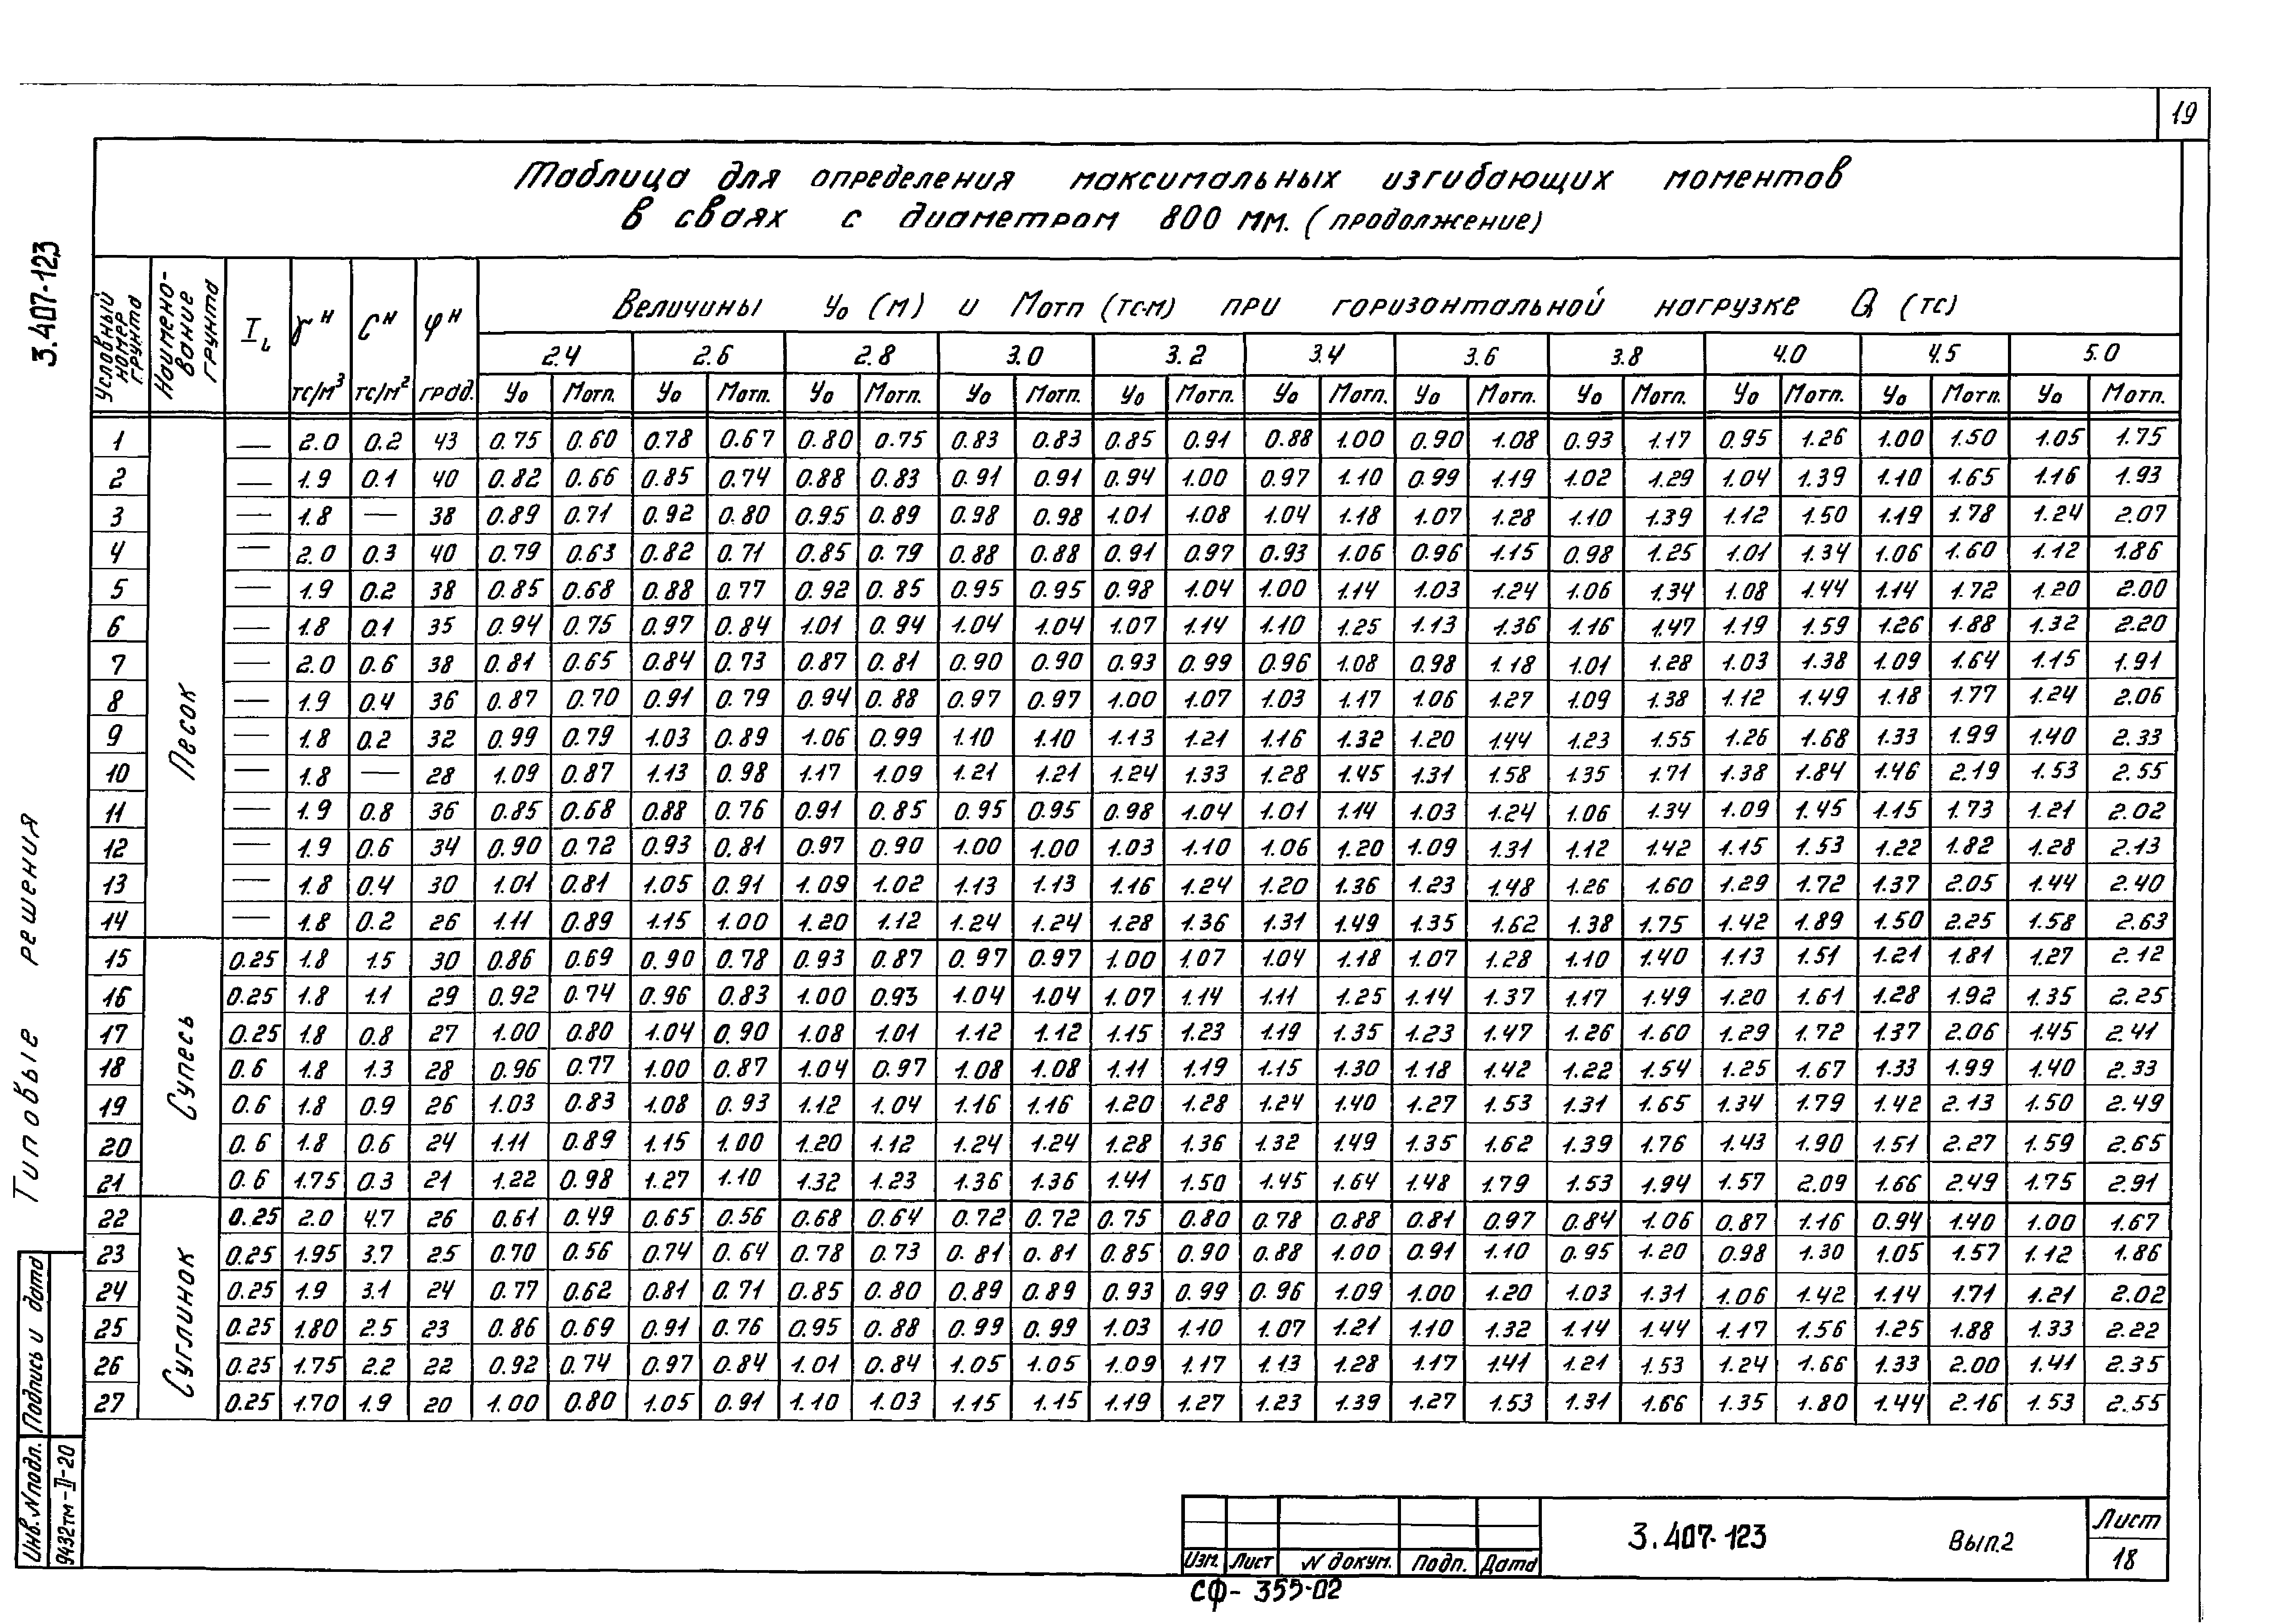 19
Таблица для определения максимальных изгибающих моментов
в сваях с диаметром 800 мм. (продолжение)
3.407-123
Типовые решения
Условный номер грунта | Наименование грунта | I L | γ н тс/м³ | С н тс/м² | φ н град. | Величины У₀ (м) и Мотп (тс·м) при горизонтальной нагрузке Q (тс)
2.4 | 2.6 | 2.8 | 3.0 | 3.2 | 3.4 | 3.6 | 3.8 | 4.0 | 4.5 | 5.0
У₀ Мотп. У₀ Мотп. У₀ Мотп. У₀ Мотп. У₀ Мотп. У₀ Мотп. У₀ Мотп. У₀ Мотп. У₀ Мотп. У₀ Мотп. У₀ Мотп.
Песок
1 — 2.0 0.2 43 0.75 0.60 0.78 0.67 0.80 0.75 0.83 0.83 0.85 0.91 0.88 1.00 0.90 1.08 0.93 1.17 0.95 1.26 1.00 1.50 1.05 1.75
2 — 1.9 0.1 40 0.82 0.66 0.85 0.74 0.88 0.83 0.91 0.91 0.94 1.00 0.97 1.10 0.99 1.19 1.02 1.29 1.04 1.39 1.10 1.65 1.16 1.93
3 — 1.8 — 38 0.89 0.71 0.92 0.80 0.95 0.89 0.98 0.98 1.01 1.08 1.04 1.18 1.07 1.28 1.10 1.39 1.12 1.50 1.19 1.78 1.24 2.07
4 — 2.0 0.3 40 0.79 0.63 0.82 0.71 0.85 0.79 0.88 0.88 0.91 0.97 0.93 1.06 0.96 1.15 0.98 1.25 1.01 1.34 1.06 1.60 1.12 1.86
5 — 1.9 0.2 38 0.85 0.68 0.88 0.77 0.92 0.85 0.95 0.95 0.98 1.04 1.00 1.14 1.03 1.24 1.06 1.34 1.08 1.44 1.14 1.72 1.20 2.00
6 — 1.8 0.1 35 0.94 0.75 0.97 0.84 1.01 0.94 1.04 1.04 1.07 1.14 1.10 1.25 1.13 1.36 1.16 1.47 1.19 1.59 1.26 1.88 1.32 2.20
7 — 2.0 0.6 38 0.81 0.65 0.84 0.73 0.87 0.81 0.90 0.90 0.93 0.99 0.96 1.08 0.98 1.18 1.01 1.28 1.03 1.38 1.09 1.64 1.15 1.91
8 — 1.9 0.4 36 0.87 0.70 0.91 0.79 0.94 0.88 0.97 0.97 1.00 1.07 1.03 1.17 1.06 1.27 1.09 1.38 1.12 1.49 1.18 1.77 1.24 2.06
9 — 1.8 0.2 32 0.99 0.79 1.03 0.89 1.06 0.99 1.10 1.10 1.13 1.21 1.16 1.32 1.20 1.44 1.23 1.55 1.26 1.68 1.33 1.99 1.40 2.33
10 — 1.8 — 28 1.09 0.87 1.13 0.98 1.17 1.09 1.21 1.21 1.24 1.33 1.28 1.45 1.31 1.58 1.35 1.71 1.38 1.84 1.46 2.19 1.53 2.55
11 — 1.9 0.8 36 0.85 0.68 0.88 0.76 0.91 0.85 0.95 0.95 0.98 1.04 1.01 1.14 1.03 1.24 1.06 1.34 1.09 1.45 1.15 1.73 1.21 2.02
12 — 1.9 0.6 34 0.90 0.72 0.93 0.81 0.97 0.90 1.00 1.00 1.03 1.10 1.06 1.20 1.09 1.31 1.12 1.42 1.15 1.53 1.22 1.82 1.28 2.13
13 — 1.8 0.4 30 1.01 0.81 1.05 0.91 1.09 1.02 1.13 1.13 1.16 1.24 1.20 1.36 1.23 1.48 1.26 1.60 1.29 1.72 1.37 2.05 1.44 2.40
14 — 1.8 0.2 26 1.11 0.89 1.15 1.00 1.20 1.12 1.24 1.24 1.28 1.36 1.31 1.49 1.35 1.62 1.38 1.75 1.42 1.89 1.50 2.25 1.58 2.63
Супесь
15 0.25 1.8 1.5 30 0.86 0.69 0.90 0.78 0.93 0.87 0.97 0.97 1.00 1.07 1.04 1.18 1.07 1.28 1.10 1.40 1.13 1.51 1.21 1.81 1.27 2.12
16 0.25 1.8 1.1 29 0.92 0.74 0.96 0.83 1.00 0.93 1.04 1.04 1.07 1.14 1.11 1.25 1.14 1.37 1.17 1.49 1.20 1.61 1.28 1.92 1.35 2.25
17 0.25 1.8 0.8 27 1.00 0.80 1.04 0.90 1.08 1.01 1.12 1.12 1.15 1.23 1.19 1.35 1.23 1.47 1.26 1.60 1.29 1.72 1.37 2.06 1.45 2.41
18 0.6 1.8 1.3 28 0.96 0.77 1.00 0.87 1.04 0.97 1.08 1.08 1.11 1.19 1.15 1.30 1.18 1.42 1.22 1.54 1.25 1.67 1.33 1.99 1.40 2.33
19 0.6 1.8 0.9 26 1.03 0.83 1.08 0.93 1.12 1.04 1.16 1.16 1.20 1.28 1.24 1.40 1.27 1.53 1.31 1.65 1.34 1.79 1.42 2.13 1.50 2.49
20 0.6 1.8 0.6 24 1.11 0.89 1.15 1.00 1.20 1.12 1.24 1.24 1.28 1.36 1.32 1.49 1.35 1.62 1.39 1.76 1.43 1.90 1.51 2.27 1.59 2.65
21 0.6 1.75 0.3 21 1.22 0.98 1.27 1.10 1.32 1.23 1.36 1.36 1.41 1.50 1.45 1.64 1.48 1.79 1.53 1.94 1.57 2.09 1.66 2.49 1.75 2.91
Суглинок
22 0.25 2.0 4.7 26 0.61 0.49 0.65 0.56 0.68 0.64 0.72 0.72 0.75 0.80 0.78 0.88 0.81 0.97 0.84 1.06 0.87 1.16 0.94 1.40 1.00 1.67
23 0.25 1.95 3.7 25 0.70 0.56 0.74 0.64 0.78 0.73 0.81 0.81 0.85 0.90 0.88 1.00 0.91 1.10 0.95 1.20 0.98 1.30 1.05 1.57 1.12 1.86
24 0.25 1.9 3.1 24 0.77 0.62 0.81 0.71 0.85 0.80 0.89 0.89 0.93 0.99 0.96 1.09 1.00 1.20 1.03 1.31 1.06 1.42 1.14 1.71 1.21 2.02
25 0.25 1.80 2.5 23 0.86 0.69 0.91 0.76 0.95 0.88 0.99 0.99 1.03 1.10 1.07 1.21 1.10 1.32 1.14 1.44 1.17 1.56 1.25 1.88 1.33 2.22
26 0.25 1.75 2.2 22 0.92 0.74 0.97 0.84 1.01 0.84 1.05 1.05 1.09 1.17 1.13 1.28 1.17 1.41 1.21 1.53 1.24 1.66 1.33 2.00 1.41 2.35
27 0.25 1.70 1.9 20 1.00 0.80 1.05 0.91 1.10 1.03 1.15 1.15 1.19 1.27 1.23 1.39 1.27 1.53 1.31 1.66 1.35 1.80 1.44 2.16 1.53 2.55
Инв. N подл. Подпись и дата
9432тм-II-20
Изм. Лист N докум. Подп. Дата
3.407-123 Вып.2
Лист
18
СФ-355-02